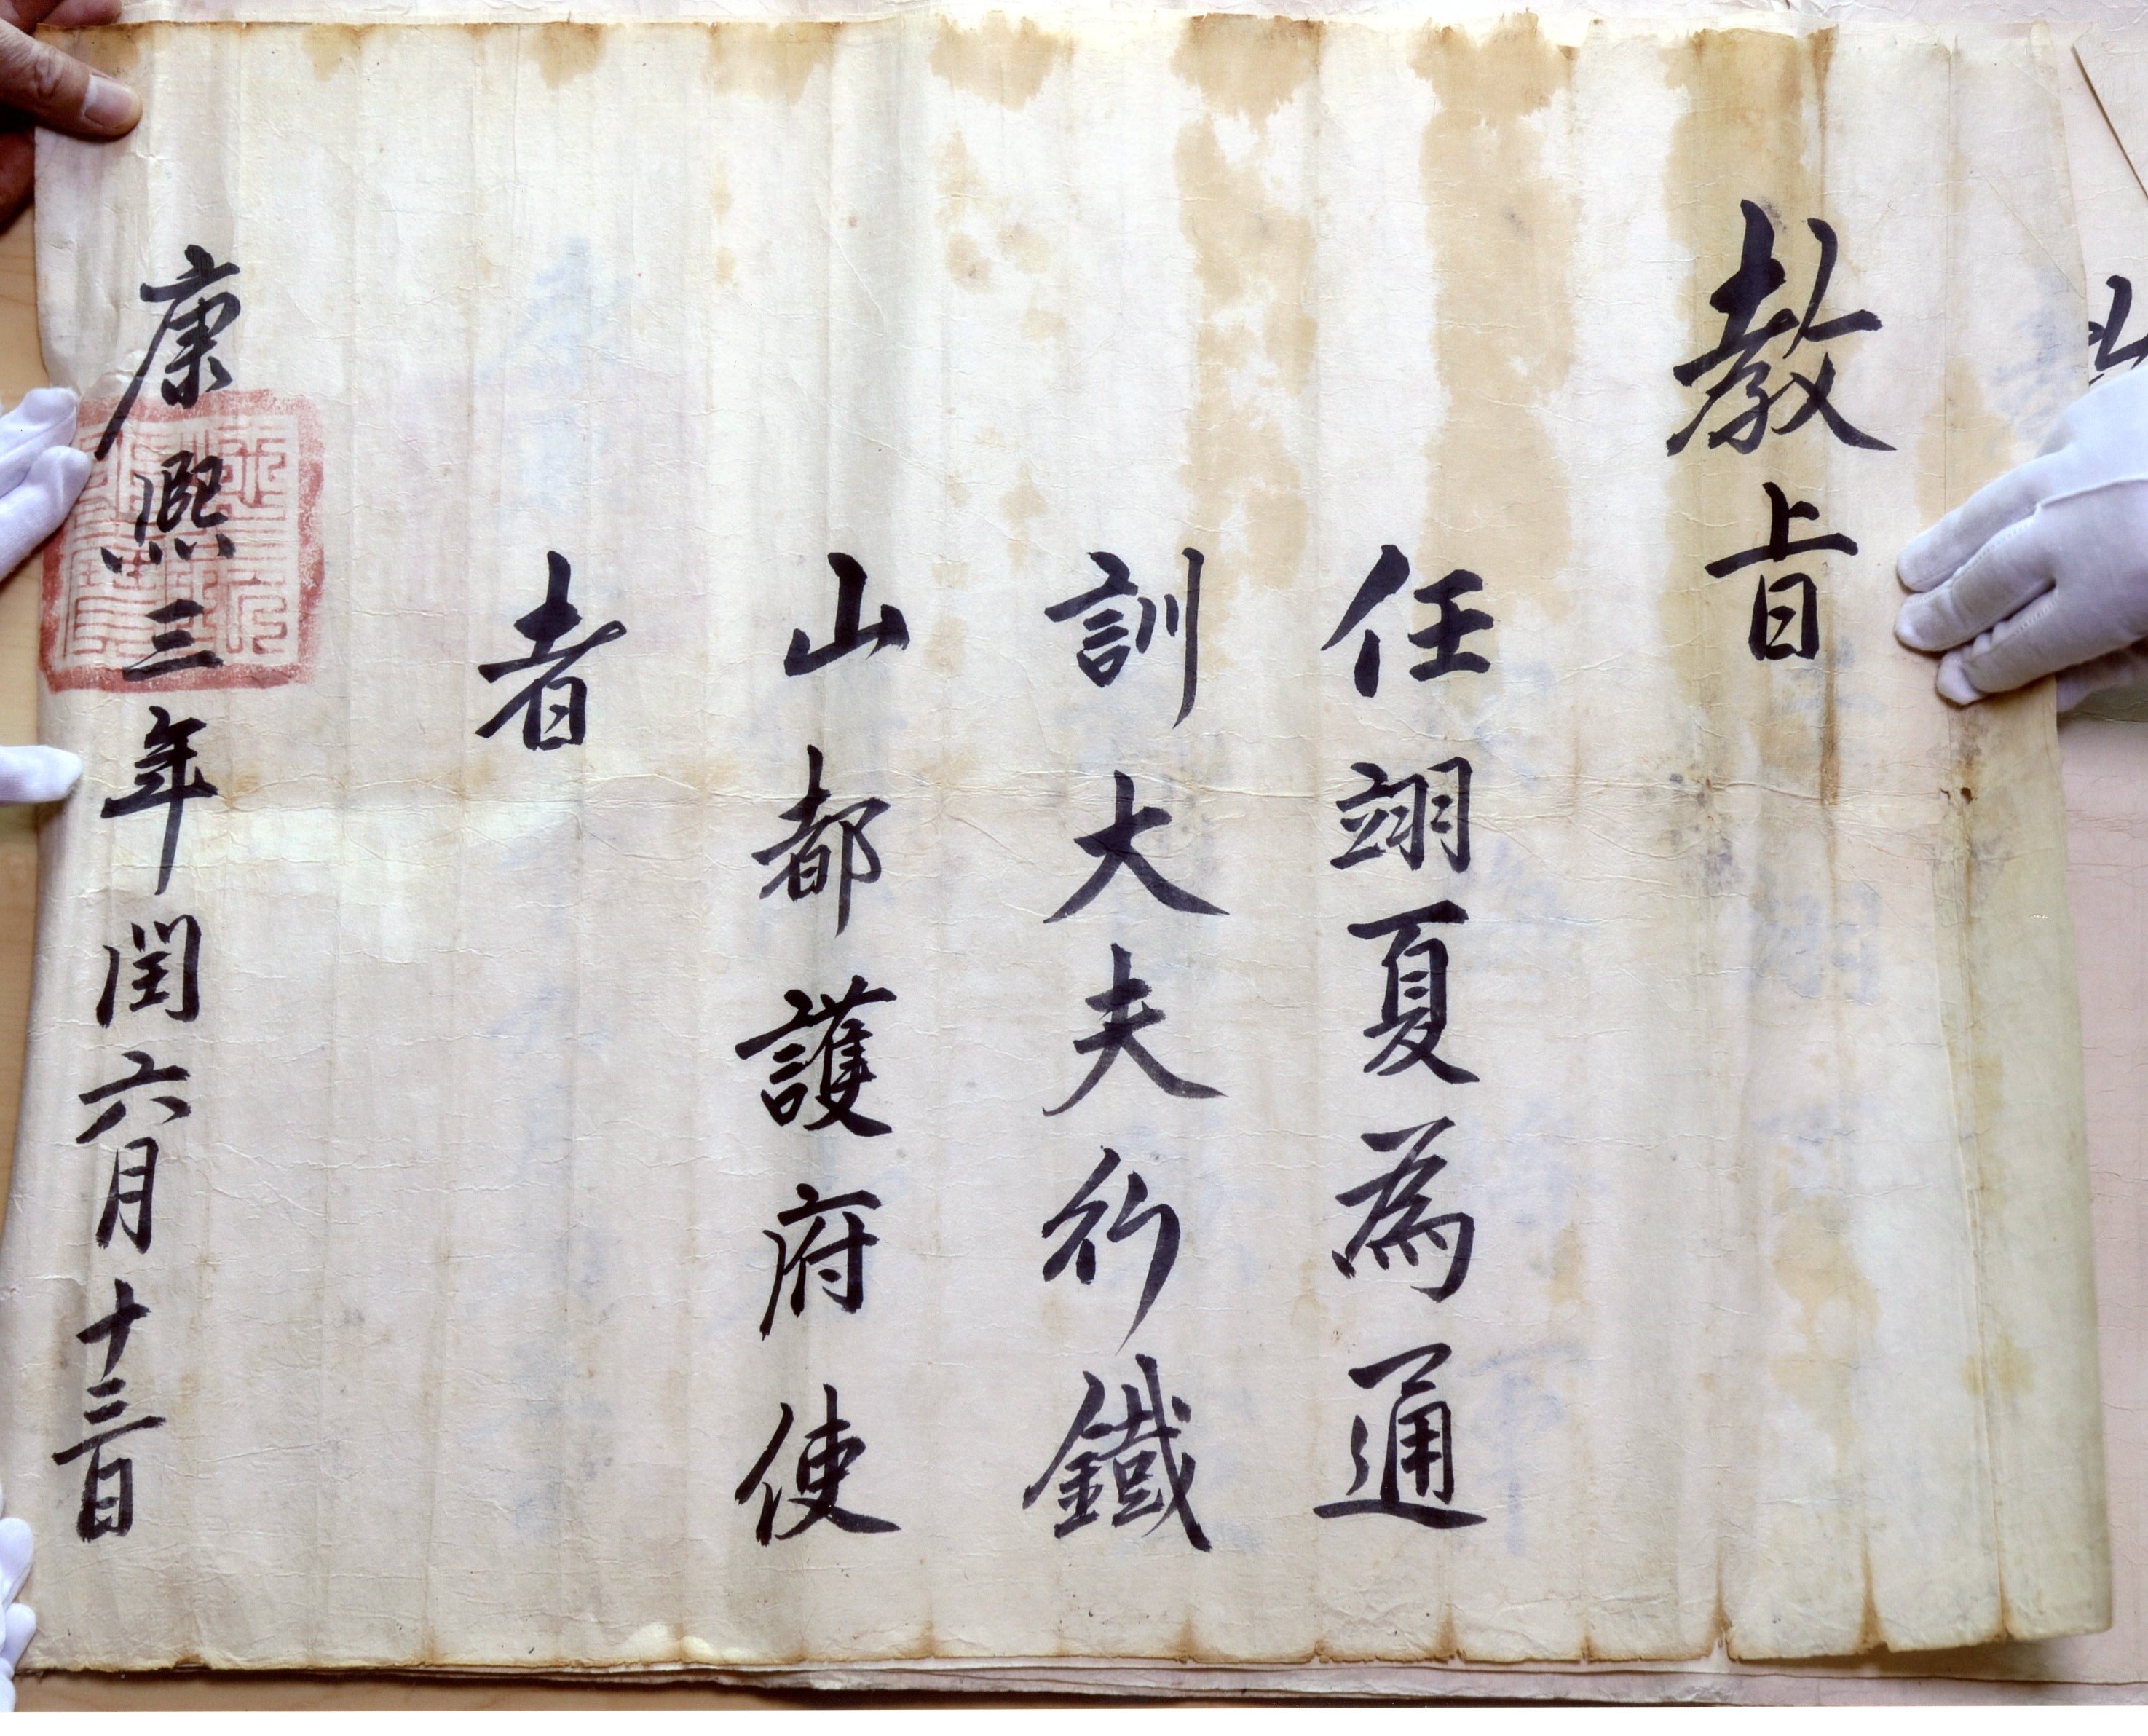 教旨
任翊夏為通
訓大夫行鐵
山都護府使
者
康熙三年閏六月十三日